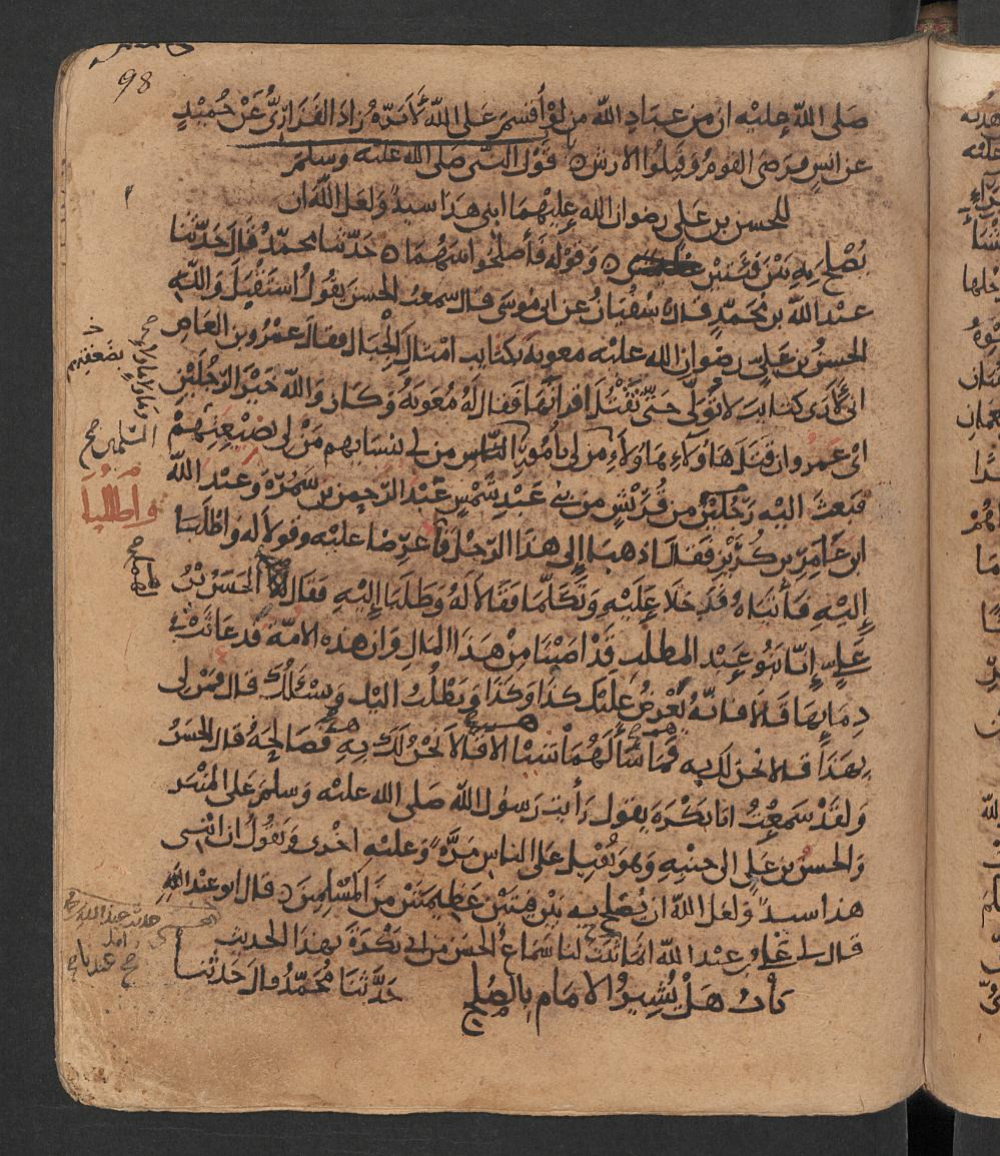 98
صلى الله عليه ان من عباد الله من لو أقسم على الله لأبره زاد الفزاري عن حميد
عن انس فرضى القوم وقبلوا الارش ٥ باب قول النبى صلى الله عليه وسلم
للحسن بن على رضوان الله عليهما ابنى هذا سيد ولعل الله ان
يصلح به بين فئتين ٥ وقوله فأصلحوا بينهما ٥ حدثنا محمد قال حدثنا
عبد الله بن محمد قال ثنا سفيان عن ابى موسى قال سمعت الحسن يقول استقبل والله
الحسن بن علي رضوان الله عليه معوية بكتايب امثال الجبال فقال عمرو بن العاص
انى لأرى كتايب لا تولى حتى تقتل اقرانها فقال له معوية وكان والله خير الرجلين
اى عمرو ان قتل هاؤلاء هاولاء من لى بامور الناس من لى بنسايهم من لى بضيعتهم
فبعث اليه رجلين من قريش من بنى عبد شمس عبد الرحمن بن سمرة وعبد الله
ابن عامر بن كريز فقال اذهبا إلى هذا الرجل فأعرضا عليه وقولا له واطلبا
إليه فأتياه فدخلا عليه وتكلما فقالا له وطلبا إليه فقال الحسن بن
علي إنا بنو عبد المطلب قد اصبنا من هذا المال وان هذه الامة قد عاثت في
دمايها قالا فانه يعرض عليك كذا وكذا ويطلب اليك ويسئلك قال فمن لى
بهذا قالا نحن لك به فما سألهما شيئا الا قالا نحن لك به فصالحه قال الحسن
ولقد سمعت ابا بكرة يقول رأيت رسول الله صلى الله عليه وسلم على المنبر
والحسن بن علي الى جنبه وهو يقبل على الناس مرة وعليه اخرى ويقول ان ابنى
هذا سيد ولعل الله ان يصلح به بين فئتين عظيمتين من المسلمين ٥ قال ابو عبد الله
قال لى علي بن عبد الله انما ثبت لنا سماع الحسن من ابى بكرة بهذا الحديث
باب هل يشير الامام بالصلح حدثنا محمد قال حدثنا
بضعفتهم
المسلمين صح
واطلبا